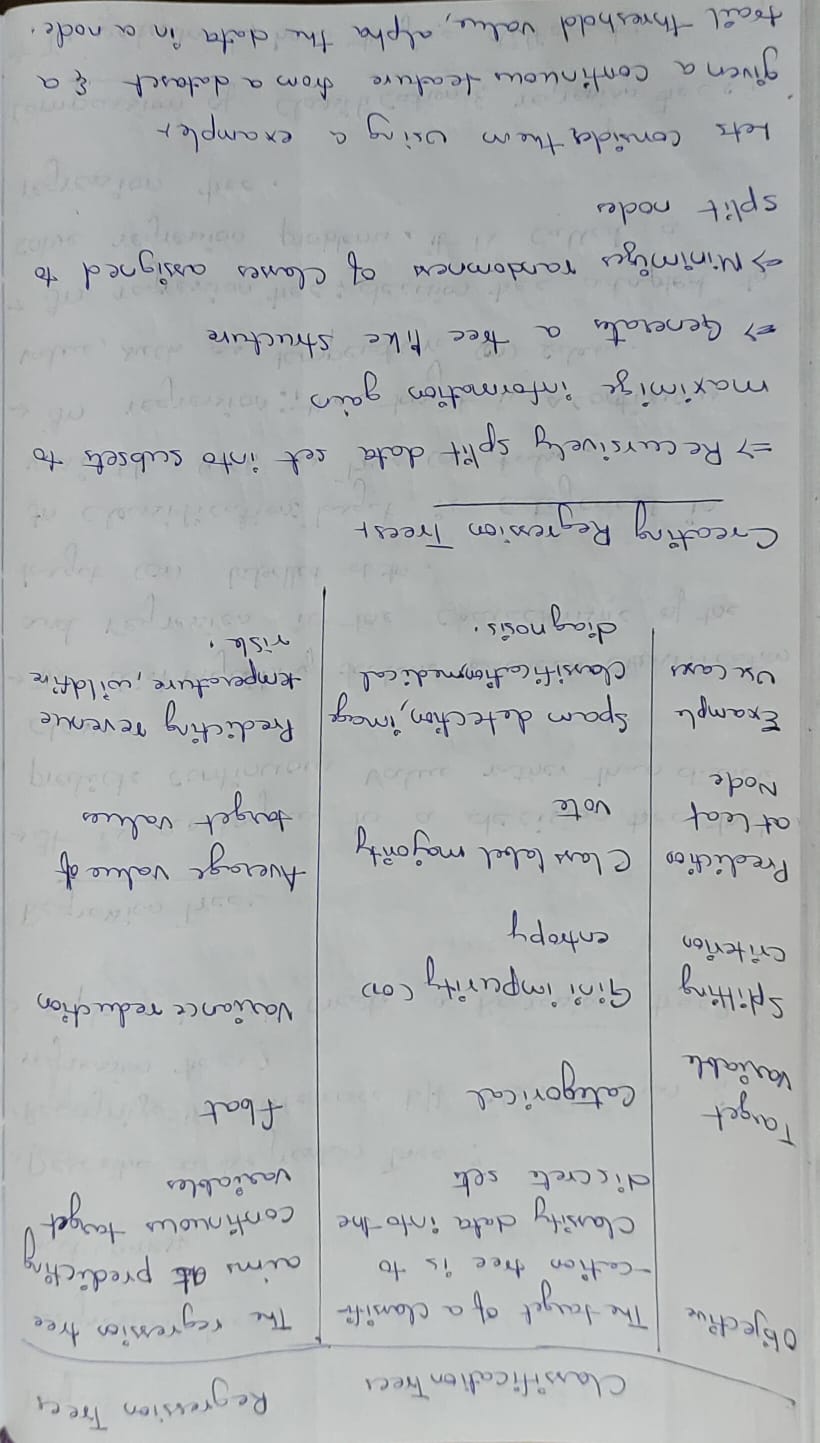 Classification Trees
Regression Trees
Objective
The target of a classifi-
-cation tree is to
classify data into the
discrete sets
The regression tree
aims at predicting
continuous target
variables
Target
Variable
Categorical
float
Splitting
criterion
Gini impurity (or)
entropy
Variance reduction
Prediction
at leaf
Node
Class label majority
vote
Average value of
target values
Example
Use cases
Spam detection, image
classification, medical
diagnosis.
Predicting revenue
temperature, wildfire
risk.
Creating Regression Trees:-
=> Recursively split data set into subsets to
maximize information gain.
=> Generates a tree like structure
=> Minimizes randomness of classes assigned to
split nodes
Lets consider them using a example:-
given a continuous feature from a dataset & a
trail threshold value, alpha the data in a node.